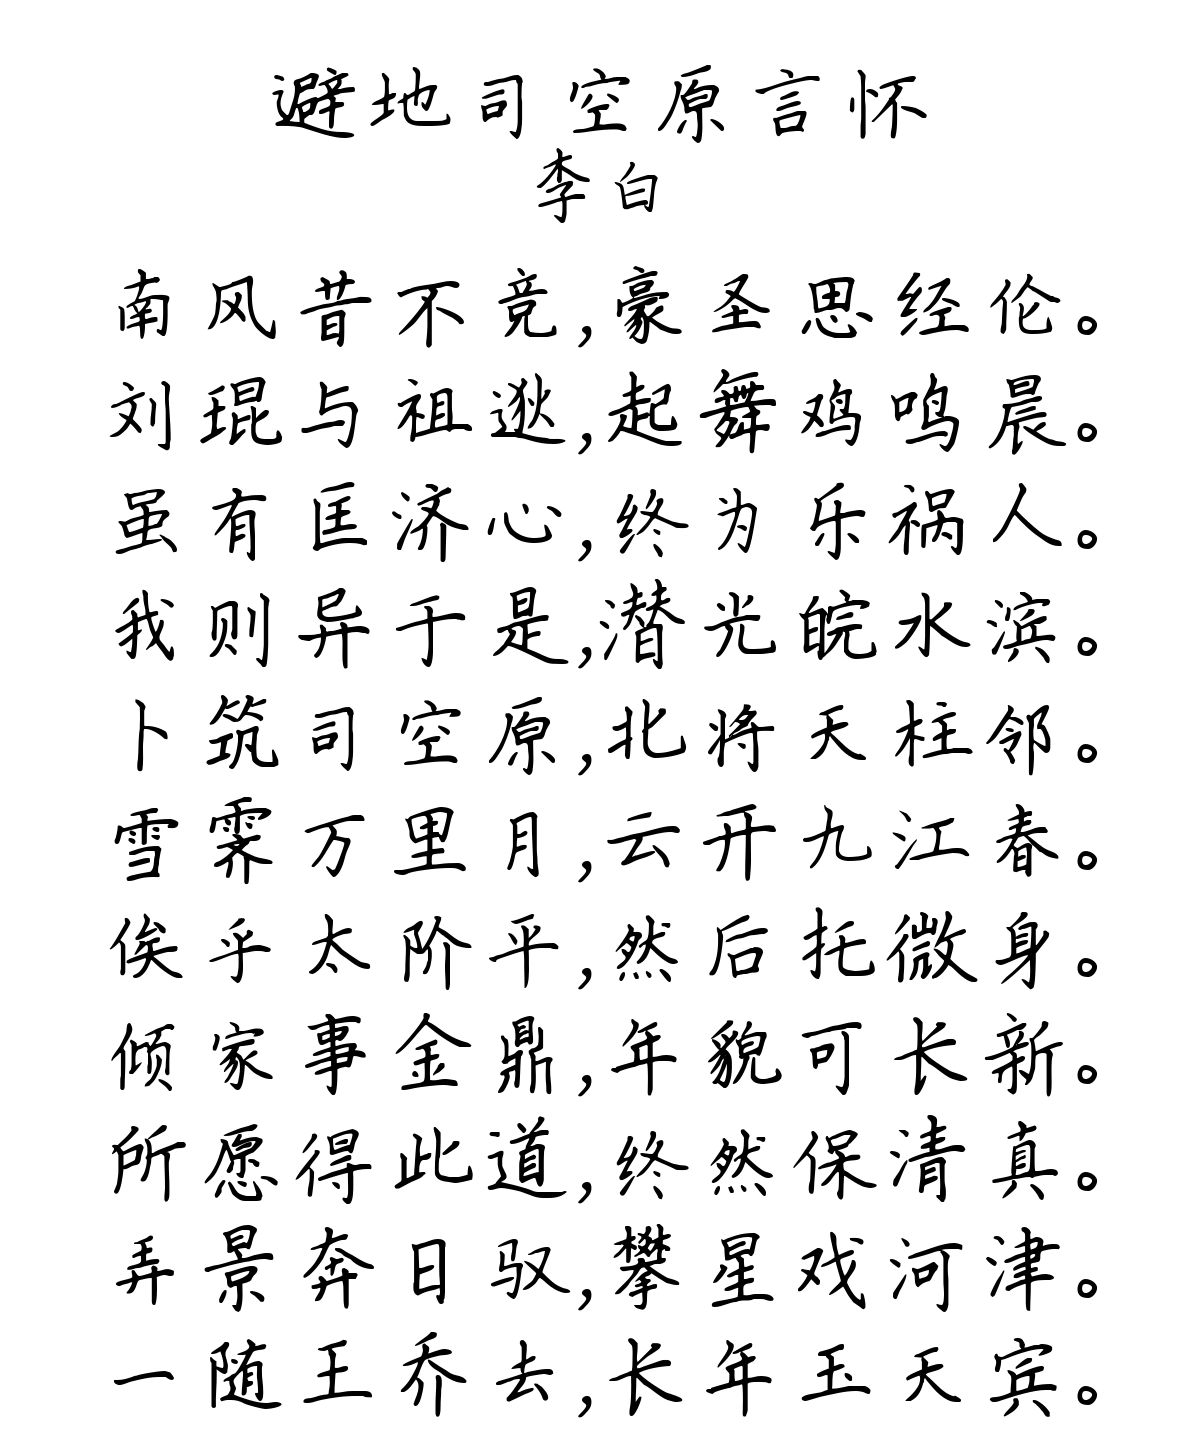 避地司空原言怀
李白
南风昔不竞,豪圣思经伦。
刘琨与祖逖,起舞鸡鸣晨。
虽有匡济心,终为乐祸人。
我则异于是,潜光皖水滨。
卜筑司空原,北将天柱邻。
雪霁万里月,云开九江春。
俟乎太阶平,然后托微身。
倾家事金鼎,年貌可长新。
所愿得此道,终然保清真。
弄景奔日驭,攀星戏河津。
一随王乔去,长年玉天宾。